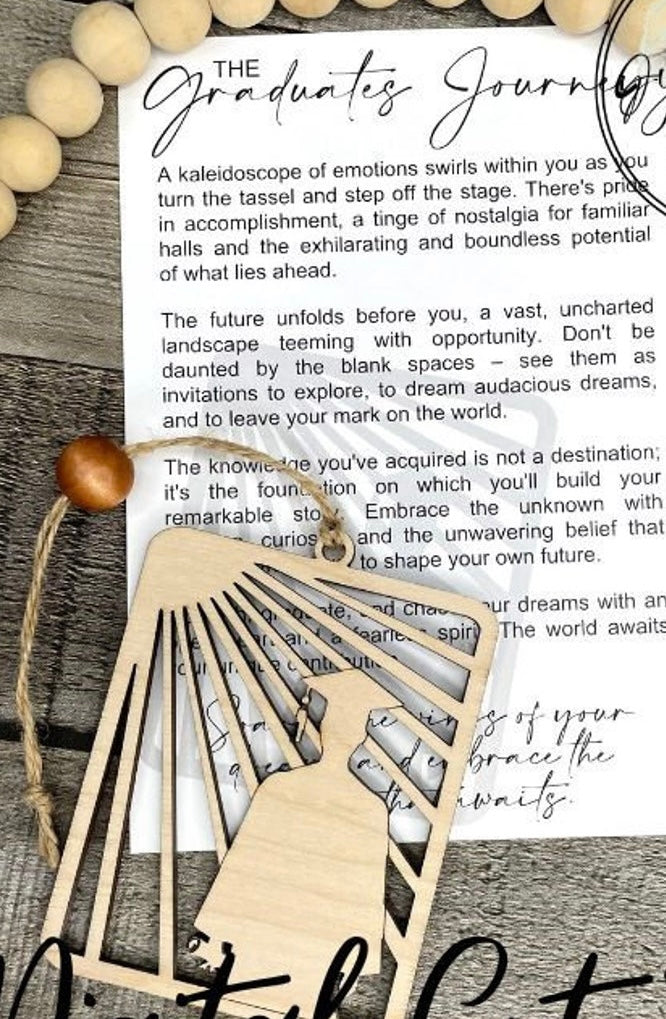 THE
Graduates Journey
A kaleidoscope of emotions swirls within you as you
turn the tassel and step off the stage. There's pride
in accomplishment, a tinge of nostalgia for familiar
halls and the exhilarating and boundless potential
of what lies ahead.
The future unfolds before you, a vast, uncharted
landscape teeming with opportunity. Don't be
daunted by the blank spaces – see them as
invitations to explore, to dream audacious dreams,
and to leave your mark on the world.
The knowledge you've acquired is not a destination;
it's the foundation on which you'll build your
remarkable story. Embrace the unknown with
and the unwavering belief that
to shape your own future.
dreams with an
and a fearless spirit. The world awaits
of your
and embrace the
that awaits.
Digital Cut